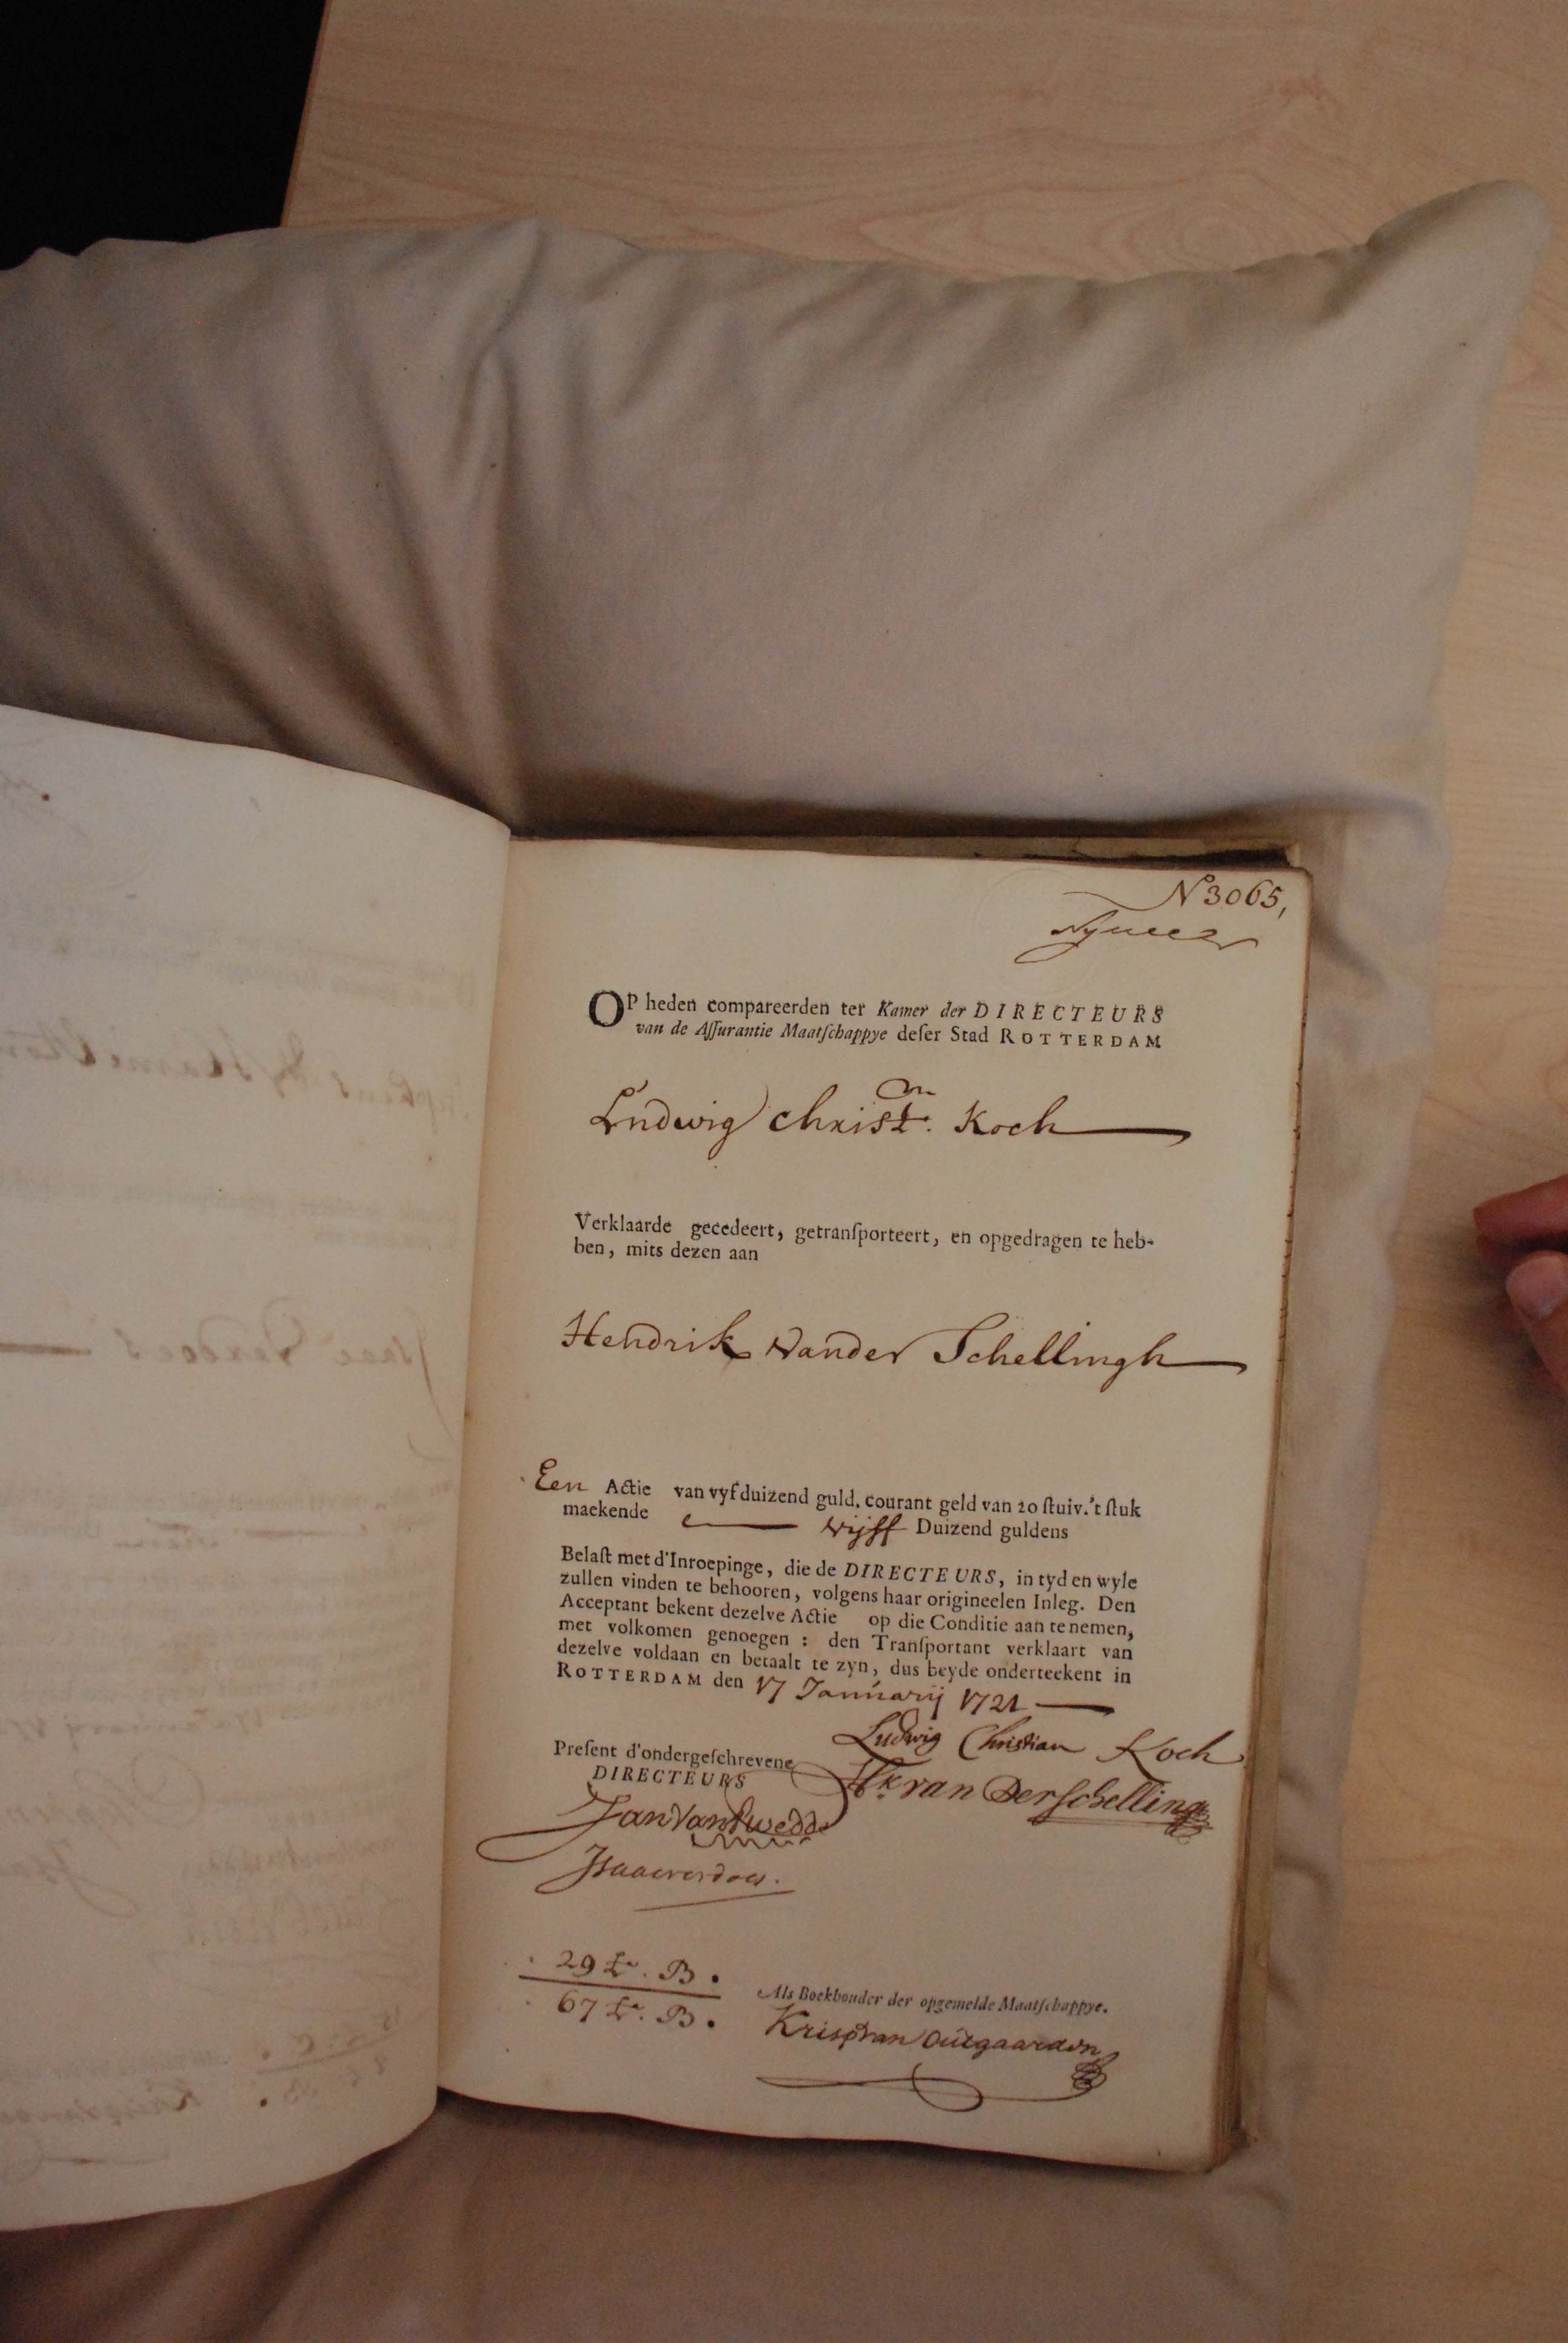 N 3065,
OP heden compareerden ter Kamer der DIRECTEURS
van de Aſſurantie Maatſchappye deſer Stad ROTTERDAM
Ludwig Christ.n Koch
Verklaarde gecedeert, getranſporteert, en opgedragen te heb-
ben, mits dezen aan
Hendrik Vander Schellingh
Een Actie van vyf duizend guld. courant geld van 20 ſtuiv. 't ſtuk
maekende Vijff Duizend guldens
Belaſt met d'Inroepinge, die de DIRECTEURS, in tyd en wyle
zullen vinden te behooren, volgens haar origineelen Inleg. Den
Acceptant bekent dezelve Actie op die Conditie aan te nemen,
met volkomen genoegen : den Tranſportant verklaart van
dezelve voldaan en betaalt te zyn, dus beyde onderteekent in
ROTTERDAM den 17 Januarij 1721
Ludwig Christian Koch
Preſent d'ondergeſchrevene
DIRECTEURS
Hk van Der Schelling
Jan Van
29 La. B.
67 La. B.
Als Boekhouder der opgemelde Maatſchappye.
Krisp van Outgaarden